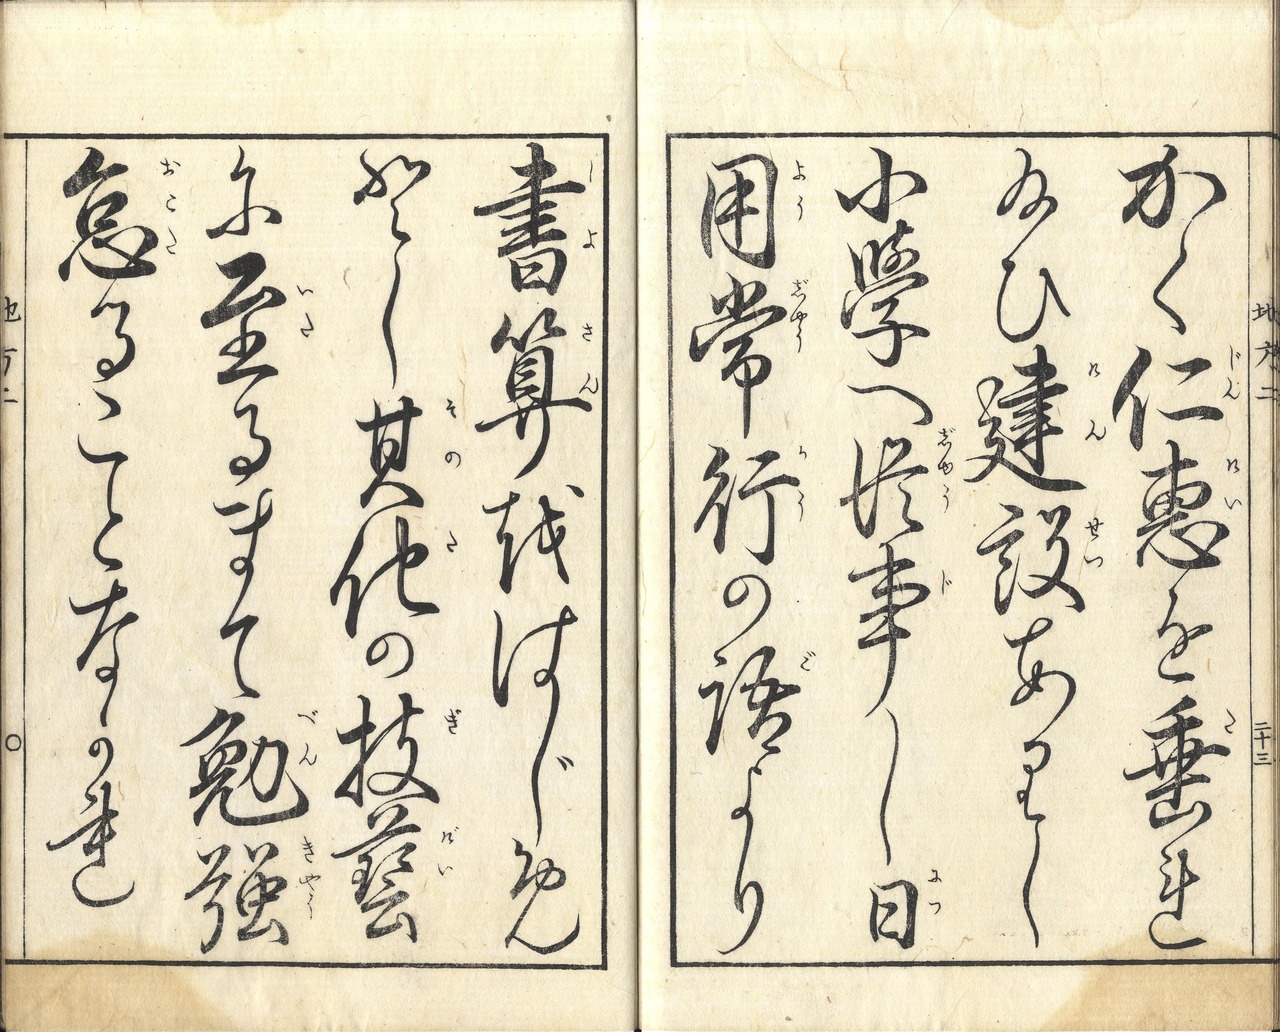 地方二
二十三
かく仁恵を垂れ
給ひ建設ありし
小學へ従事し日
用常行の語より
書算をはじめ
とし其他の技藝
に至るまて勉強
怠ることなかれ